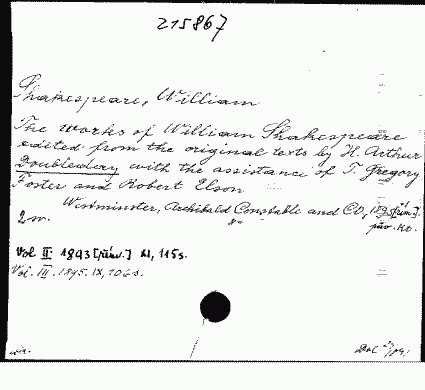 215867
Shakespeare, William
The works of William Shakespeare
edited from the original texts by H. Arthur
Doubleday with the assistance of T. Gregory
Foster and Robert Elson
Westminster, Archibald Constable and Co, 1893 [pův.]
8° pův. kr.
2 sv.
Vol II. 1893 [pův.] XI, 115s.
Vol. III. 1895. IX, 106 s.